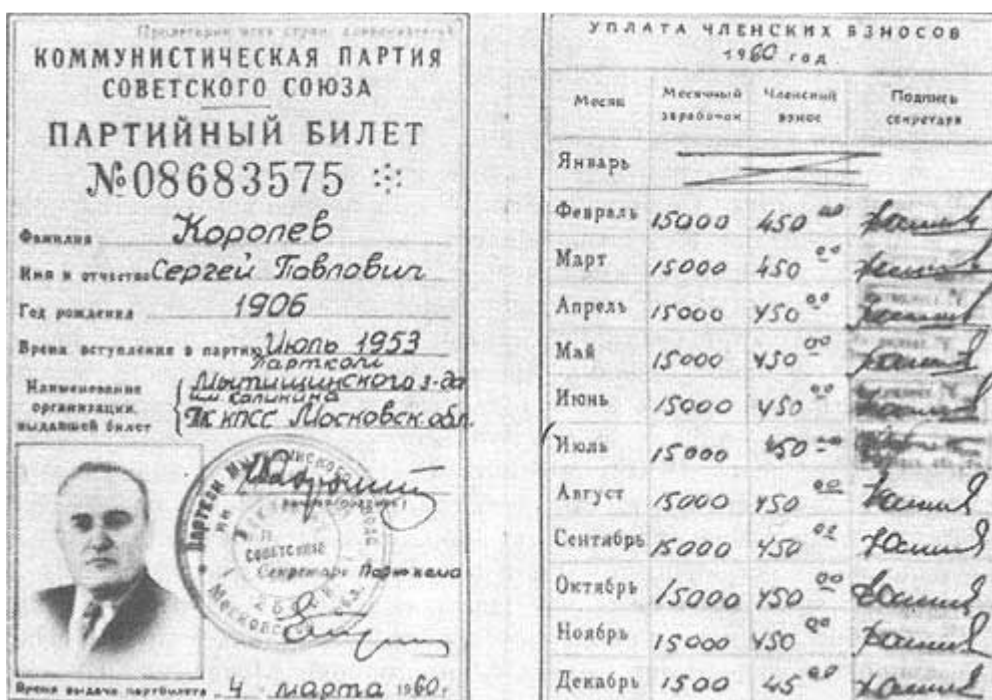 Пролетарии всех стран, соединяйтесь!
КОММУНИСТИЧЕСКАЯ ПАРТИЯ
СОВЕТСКОГО СОЮЗА
ПАРТИЙНЫЙ БИЛЕТ
№ 08683575
Фамилия Королев
Имя и отчество Сергей Павлович
Год рождения 1906
Время вступления в партию Июль 1953
Наименование организации, выдавшей билет
Партком
Мытищинского з-да
им. Калинина
ГК КПСС Московск. обл.
Секретарь Парткома
Время выдачи партбилета 4 марта 1960 г.
УПЛАТА ЧЛЕНСКИХ ВЗНОСОВ
1960 год
Месяц Месячный заработок Членский взнос Подпись секретаря
Январь
Февраль 15000 450 00
Март 15000 450 00
Апрель 15000 450 00
Май 15000 450 00
Июнь 15000 450 00
Июль 15000 450 00
Август 15000 450 00
Сентябрь 15000 450 00
Октябрь 15000 450 00
Ноябрь 15000 450 00
Декабрь 1500 45 00